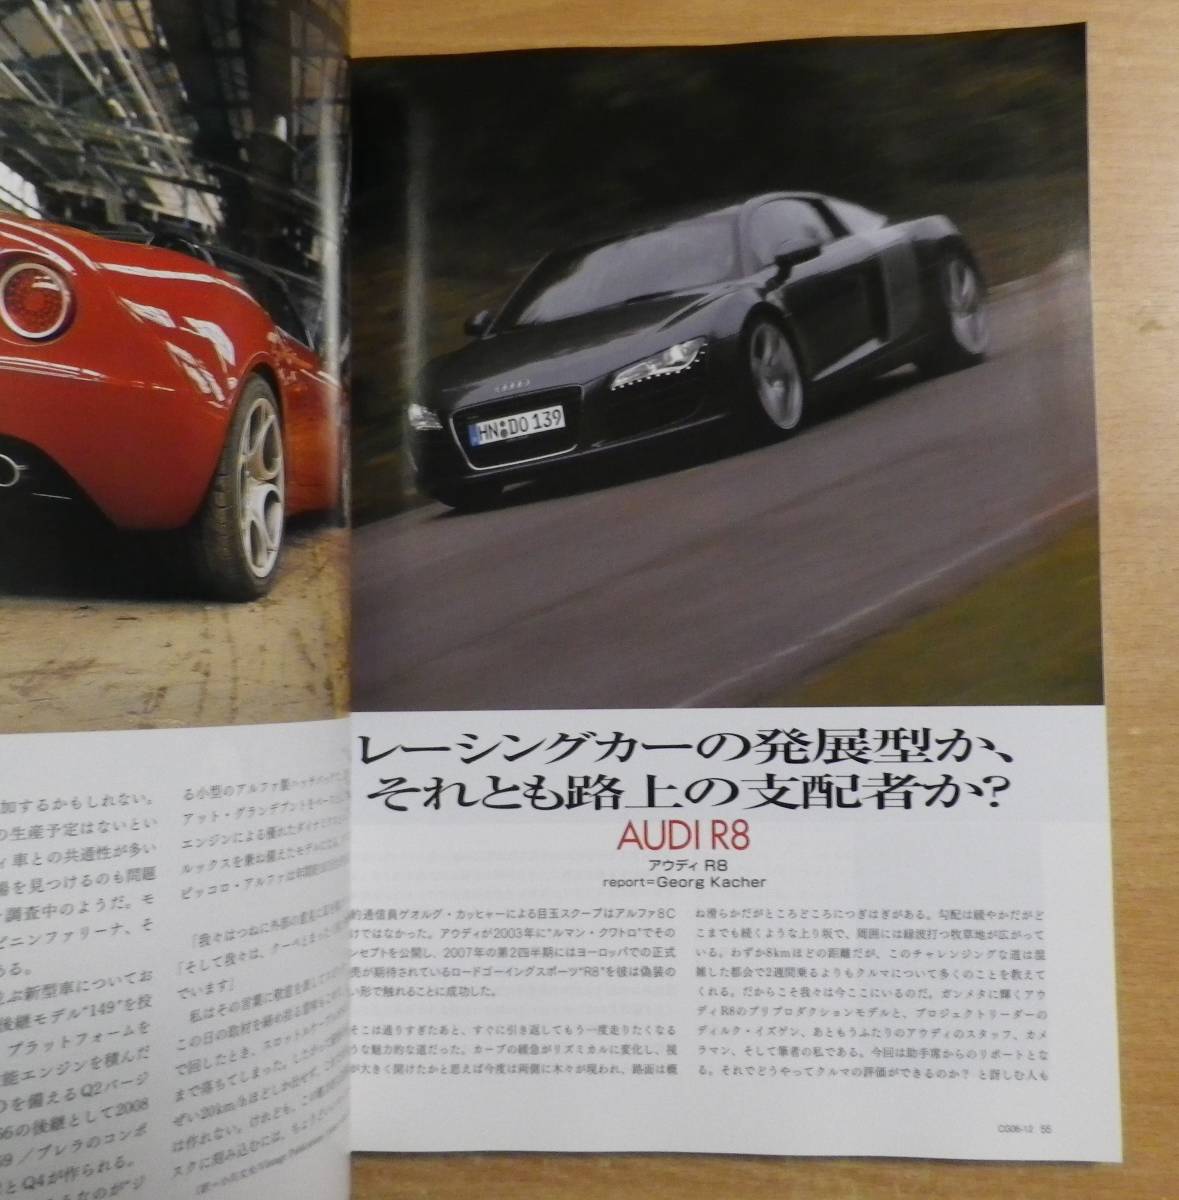 加するかもしれない。
の生産予定はないとい
ィ車との共通性が多い
場を見つけるのも問題
調査中のようだ。モ
ピニンファリーナ、そ
ある。
ぶ新型車についてお
後継モデル“149”を投
プラットフォームを
エンジンを積んだ
を備えるQ2バージ
66の後継として2008
/ブレラのコンポ
とQ4が作られる。
る小型のアルファ製
アット・グランデプントをベース
エンジンによる優れたダイナミ
ルックスを兼ね備えたモデルに
ピッコロ・アルファは年間
「我々はつねに外部の
「そして我々は、クーペと
でいます」
私はその言葉に
この日の取材を締め
で回したとき、スロットル
まで落ちてしまった。したがって
ぜい20km/hほどしか出せず、
は作れない。けれども、この
スクに刻み込むには、ちょうど
AUDI
HN DO 139
レーシングカーの発展型か、
それとも路上の支配者か?
AUDI R8
アウディ R8
report=Georg Kacher
約通信員ゲオルグ・カッヒャーによる目玉スクープはアルファ8C
けではなかった。アウディが2003年に“ルマン・クワトロ”でその
ンセプトを公開し、2007年の第2四半期にはヨーロッパでの正式
売が期待されているロードゴーイングスポーツ“R8”を彼は偽装の
い形で触れることに成功した。
そこは通りすぎたあと、すぐに引き返してもう一度走りたくなる
うな魅力的な道だった。カーブの緩急がリズミカルに変化し、視
が大きく開けたかと思えば今度は両側に木々が現われ、路面は概
ね滑らかだがところどころにつぎはぎがある。勾配は緩やかだがど
こまでも続くような上り坂で、周囲には緑波打つ牧草地が広がって
いる。わずか8kmほどの距離だが、このチャレンジングな道は混
雑した都会で2週間乗るよりもクルマについて多くのことを教えて
くれる。だからこそ我々は今ここにいるのだ。ガンメタに輝くアウ
ディR8のプリプロダクションモデルと、プロジェクトリーダーの
ディルク・イズゲン、あともうふたりのアウディのスタッフ、カメ
ラマン、そして筆者の私である。今回は助手席からのリポートとな
る。それでどうやってクルマの評価ができるのか? と訝しむ人も
CG06-12 55